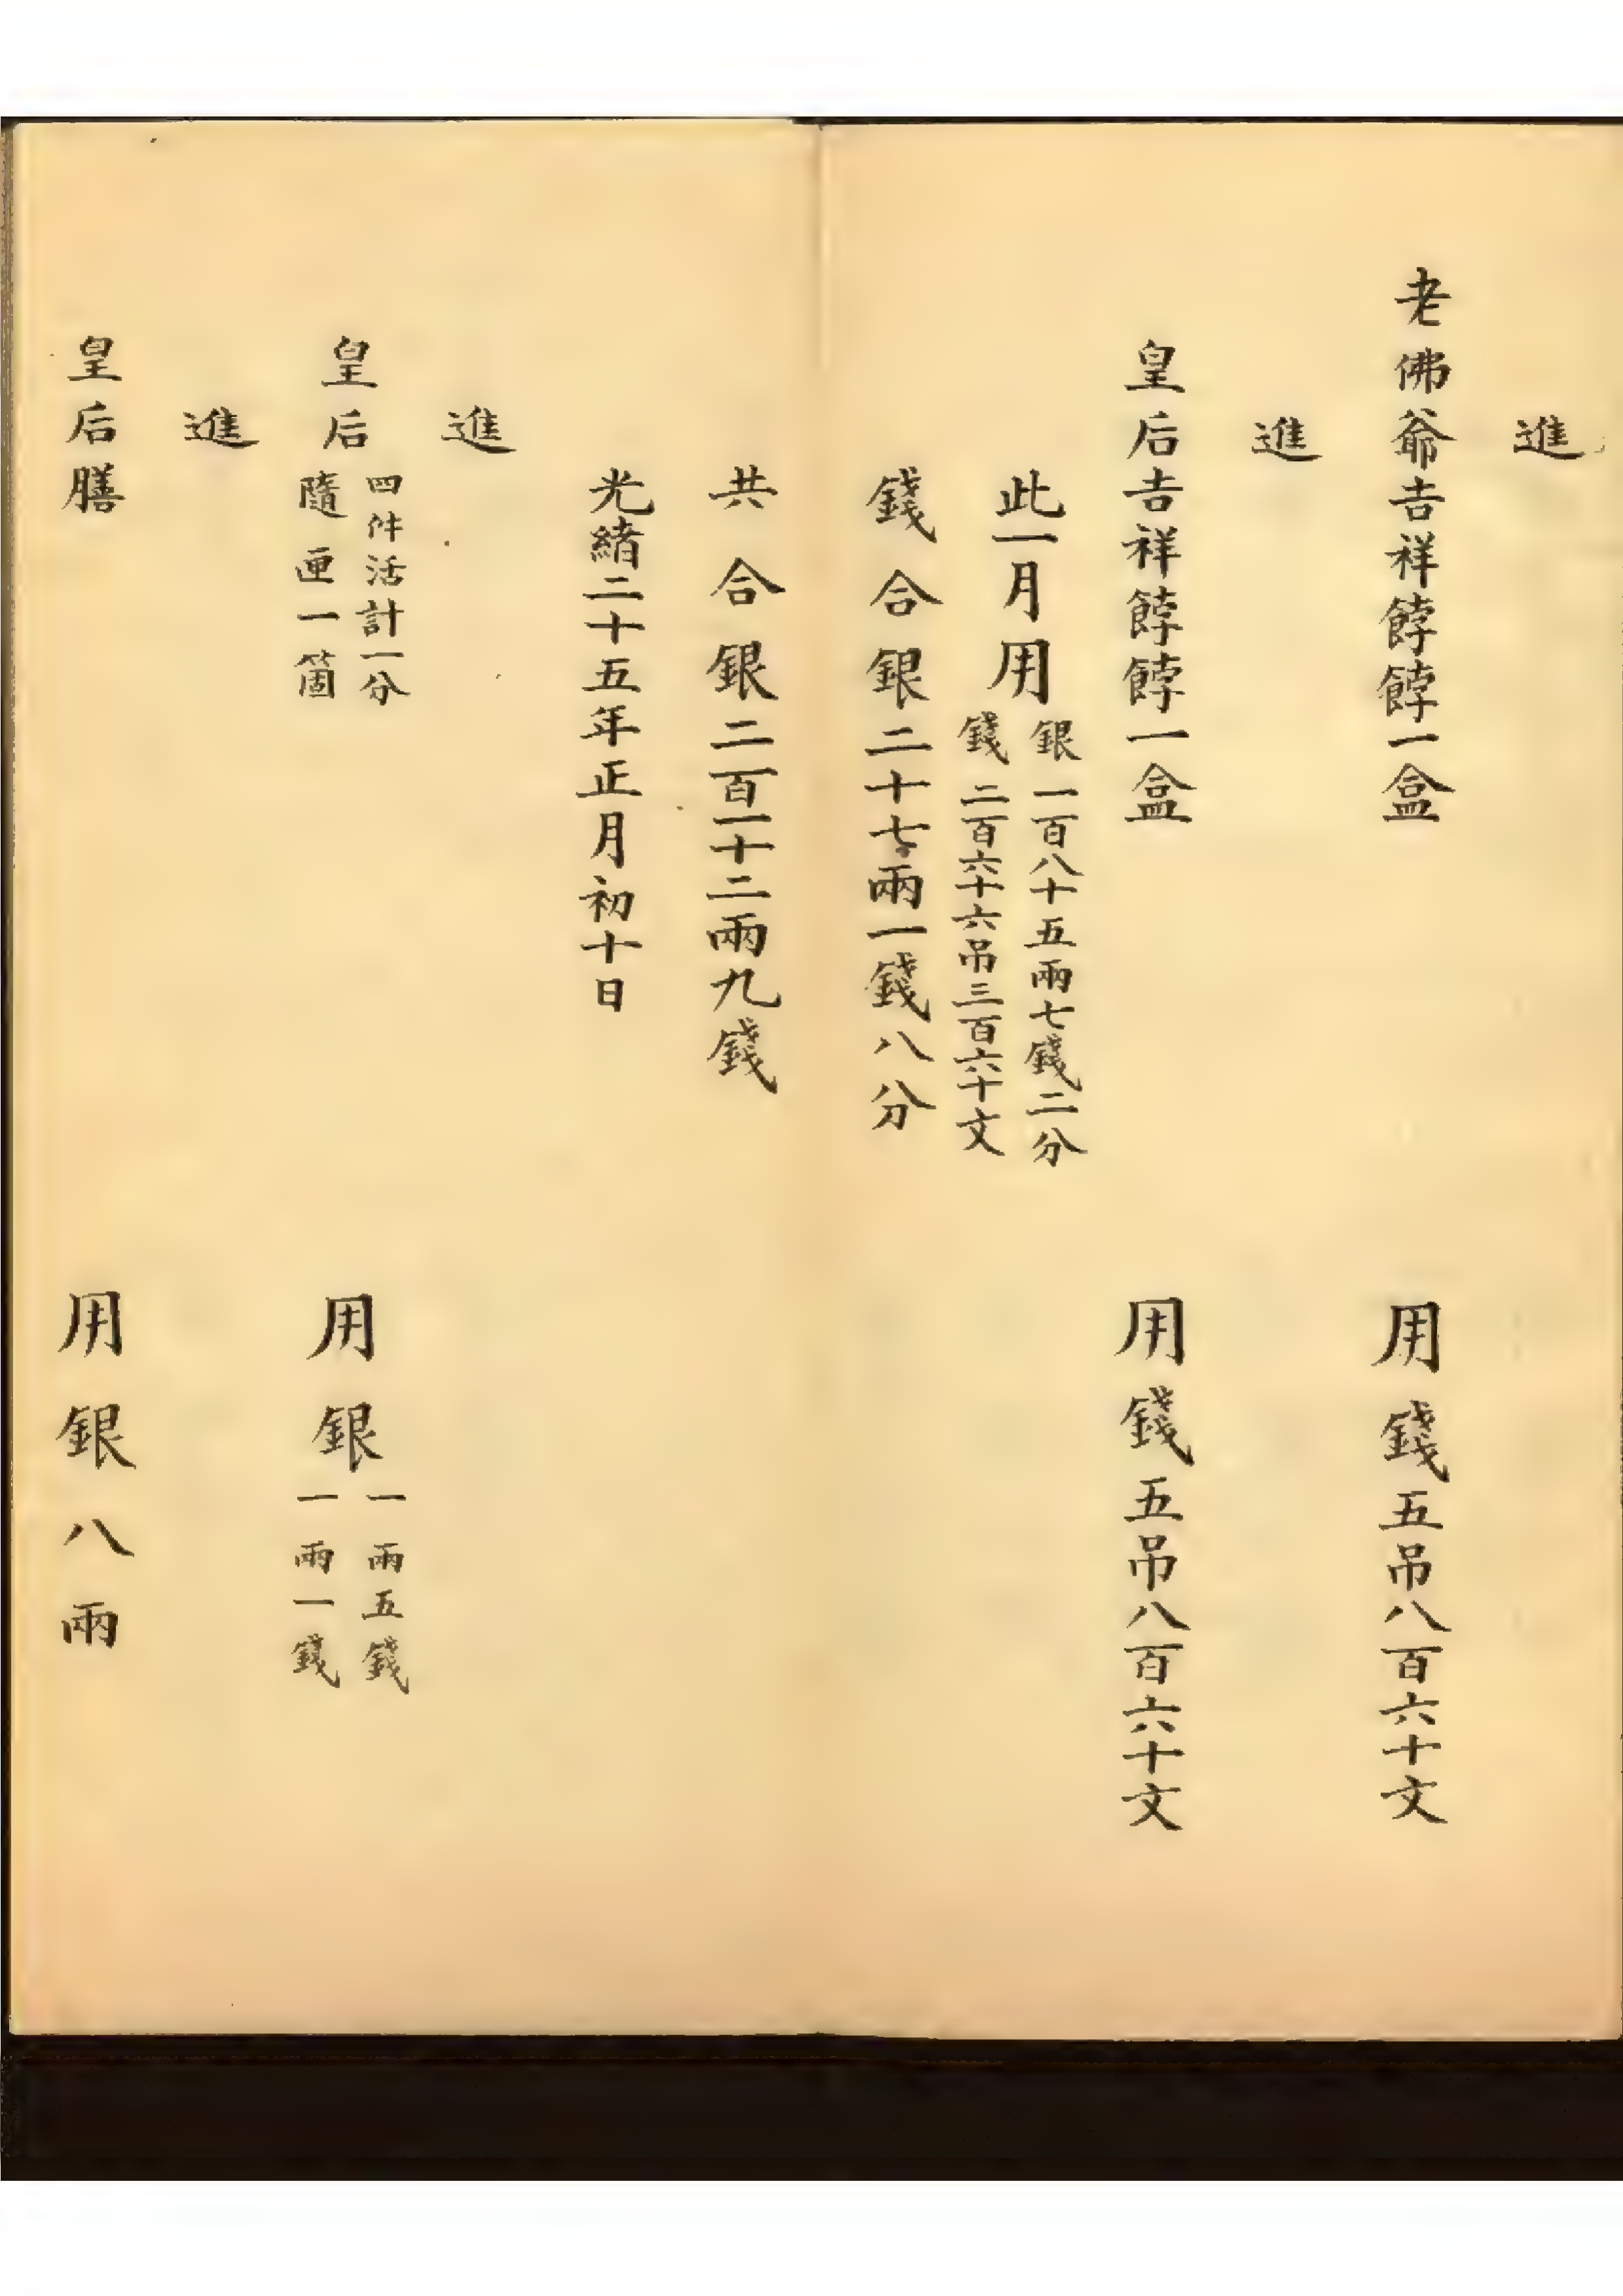 進
老佛爺吉祥餑餑一盒 用錢五吊八百六十文
進
皇后吉祥餑餑一盒 用錢五吊八百六十文
此一月用
銀一百八十五兩七錢二分
錢二百六十六吊三百六十文
錢合銀二十七兩一錢八分
共合銀二百一十二兩九錢
光緒二十五年正月初十日
進
皇后
四件活計一分
隨匣一箇
用銀
一兩五錢
一兩一錢
進
皇后膳 用銀八兩